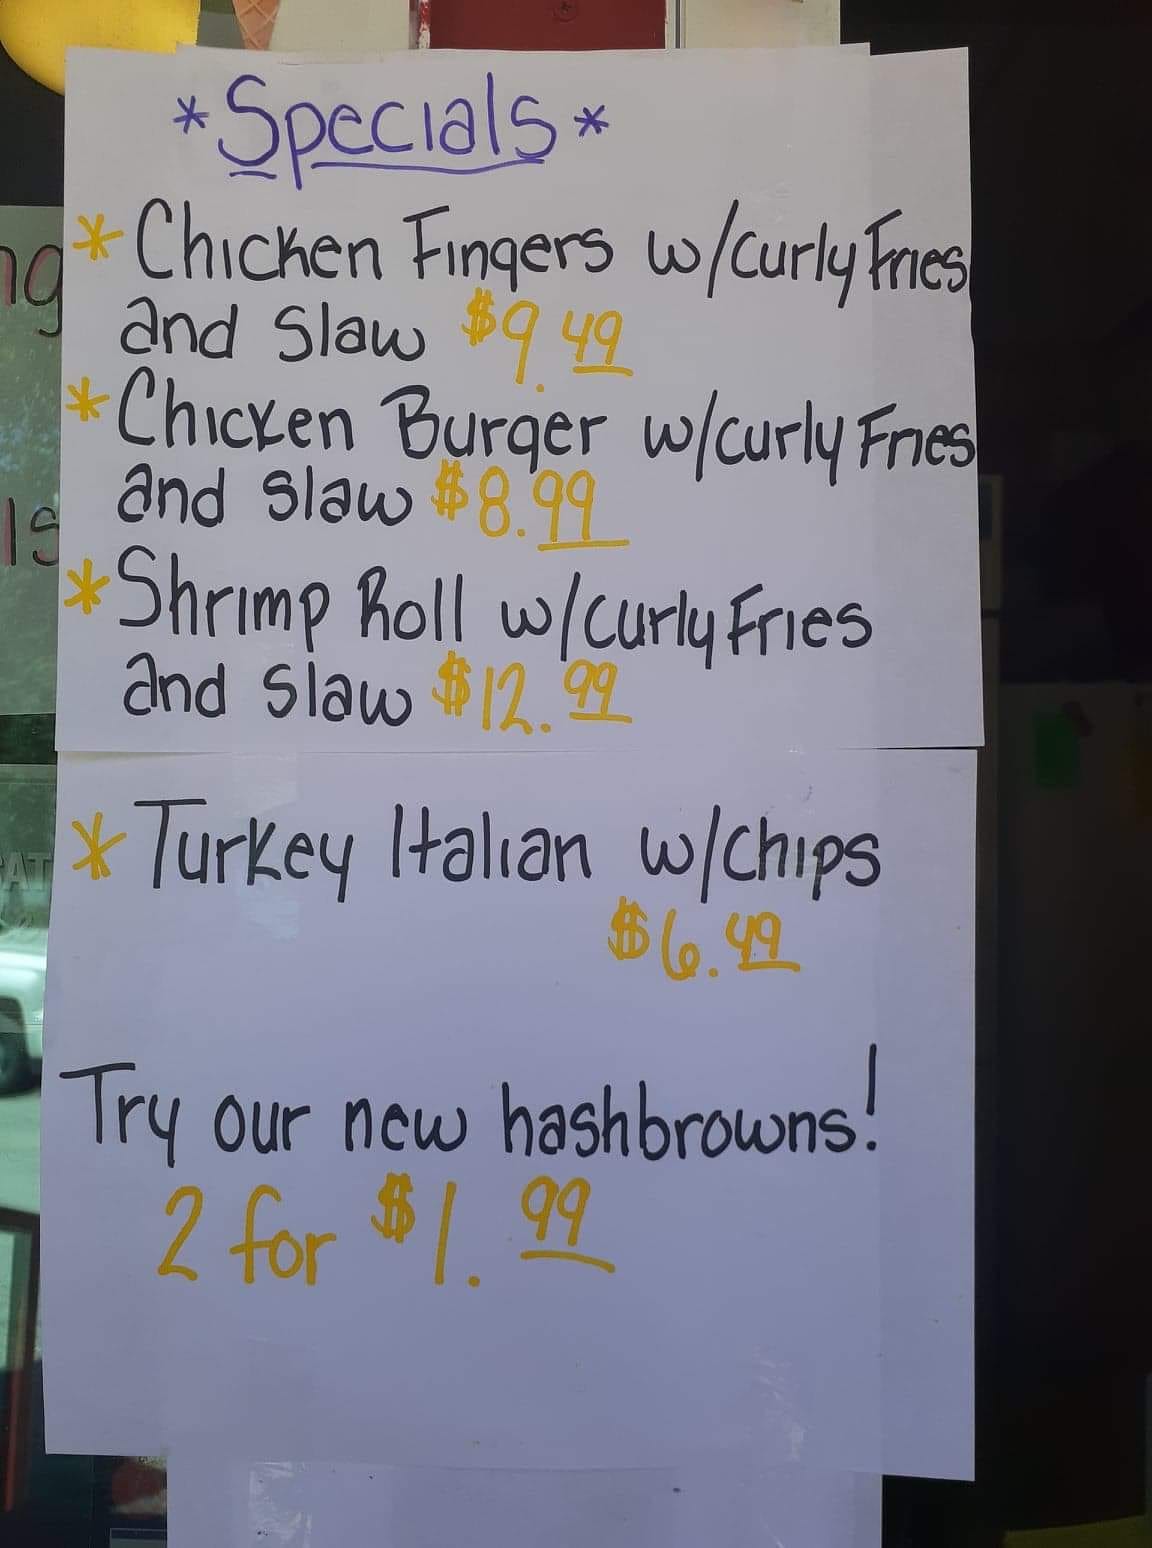 *Specials*
* Chicken Fingers w/curly Fries
and slaw $9.49
* Chicken Burger w/curly Fries
and slaw $8.99
* Shrimp Roll w/curly Fries
and slaw $12.99
* Turkey Italian w/chips
$6.49
Try our new hashbrowns!
2 for $1.99